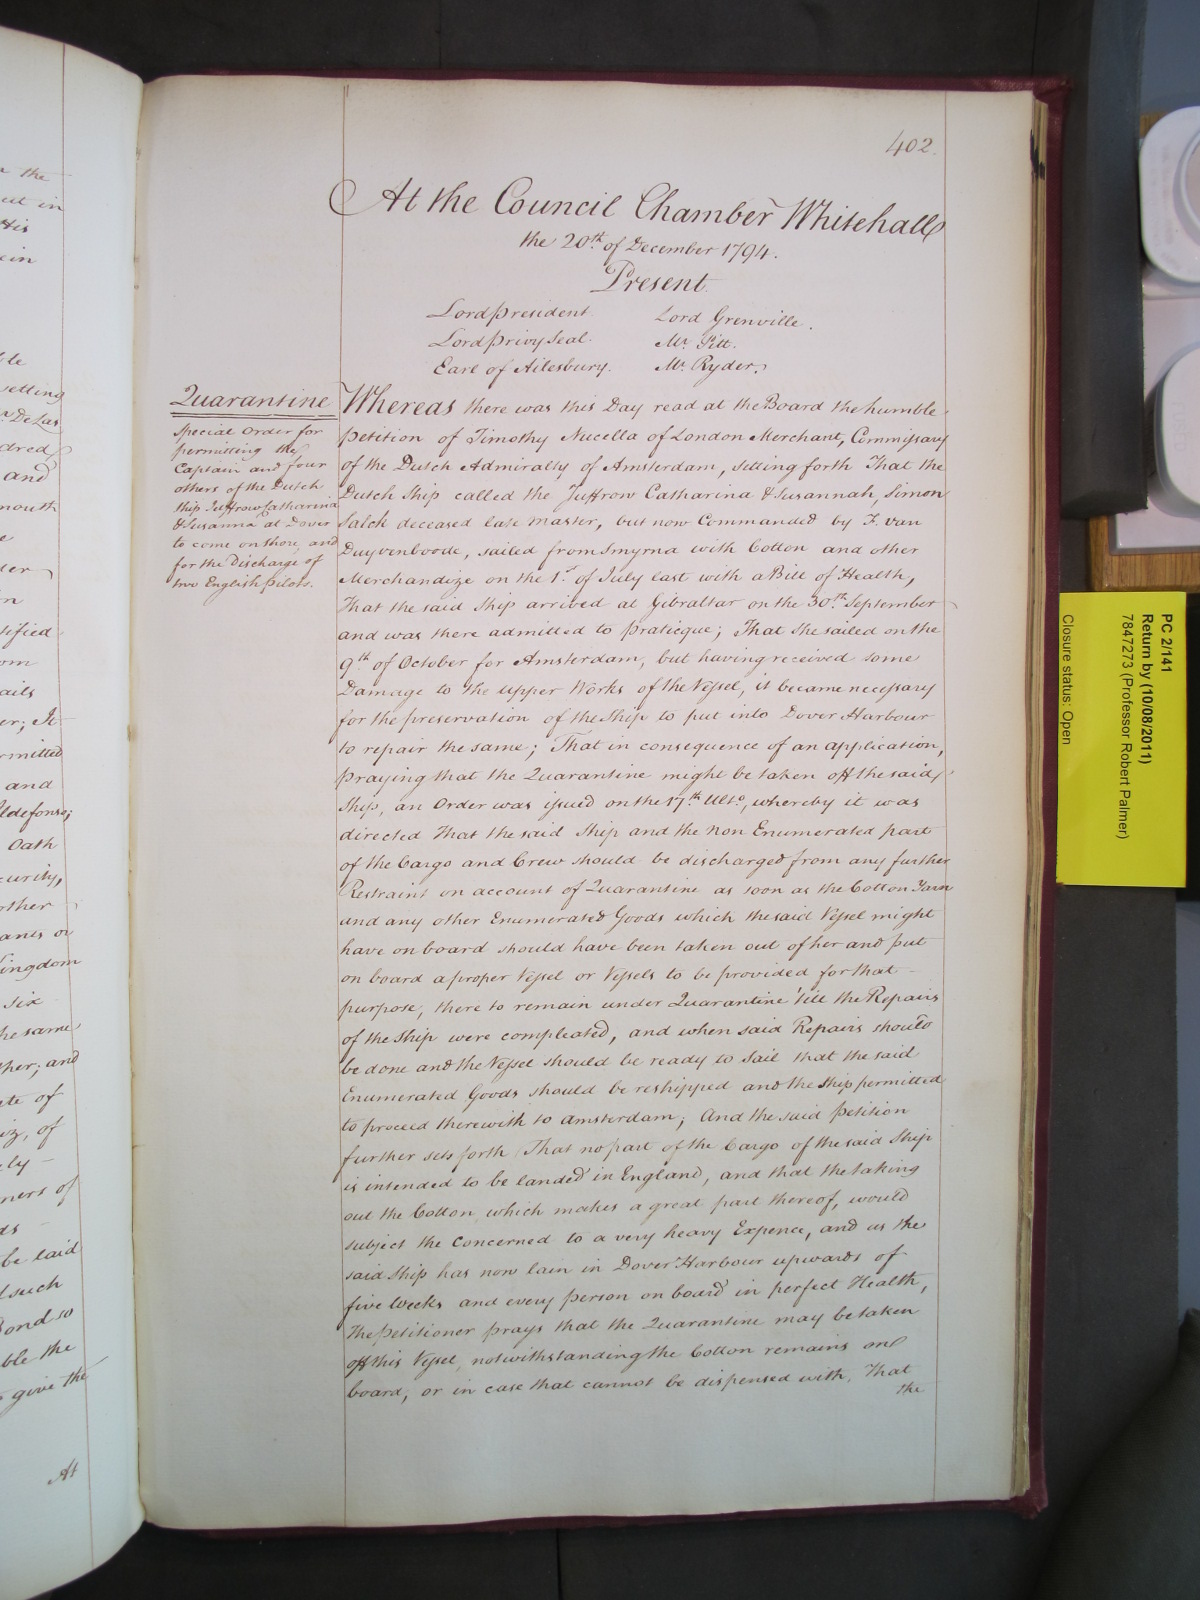 402.
At the Council Chamber Whitehall
the 20th of December 1794.
Present
Lord President Lord Grenville.
Lord Privy Seal. Mr. Pitt.
Earl of Ailesbury. Mr. Ryder.
Quarantine
Special Order for
permitting the
Captain and four
others of the Dutch
Ship Juffrow Catharina
& Susanna at Dover
to come on shore, and
for the Discharge of
two English Pilots.
Whereas there was this Day read at the Board the humble
Petition of Timothy Nucella of London Merchant, Commissary
of the Dutch Admiralty of Amsterdam, setting forth That the
Dutch Ship called the Juffrow Catharina & Susannah, Simon
Salck deceased late Master, but now Commanded by F. van
Duyvenboode, sailed from Smyrna with Cotton and other
Merchandize on the 1st of July last with a Bill of Health,
That the said Ship arrived at Gibraltar on the 30th September
and was there admitted to Praticque; That she sailed on the
9th of October for Amsterdam, but having received some
Damage to the upper Works of the Vessel, it became necessary
for the preservation of the Ship to put into Dover Harbour
to repair the same; That in consequence of an application,
praying that the Quarantine might be taken off the said
Ship, an Order was issued on the 17th Ulto, whereby it was
directed That the said Ship and the non Enumerated part
of the Cargo and Crew should be discharged from any further
Restraint on account of Quarantine as soon as the Cotton Yarn
and any other Enumerated Goods which the said Vessel might
have on board should have been taken out of her and put
on board a proper Vessel or Vessels to be provided for that
purpose, there to remain under Quarantine 'till the Repairs
of the Ship were compleated, and when said Repairs should
be done and the Vessel should be ready to Sail that the said
Enumerated Goods should be reshipped and the Ship permitted
to proceed therewith to Amsterdam; And the said Petition
further sets forth That no part of the Cargo of the said Ship
is intended to be landed in England, and that the taking
out the Cotton which makes a great part thereof, would
subject the Concerned to a very heavy Expence, and as the
said Ship has now lain in Dover Harbour upwards of
five Weeks and every Person on board in perfect Health,
The Petitioner prays that the Quarantine may be taken
off this Vessel, notwithstanding the Cotton remains on
board, or in case that cannot be dispensed with, That
the
PC 2/141
Return by (10/08/2011)
7847273 (Professor Robert Palmer)
Closure status: Open
the
out in
His
setting
De Las
and
mouth
om
ails
er; It
and
Oath
curity,
other
ants or
Kingdom
Six
the same,
ther; and
of
viz, of
ely
ners of
be laid
such
Bond so
ble the
give the
At